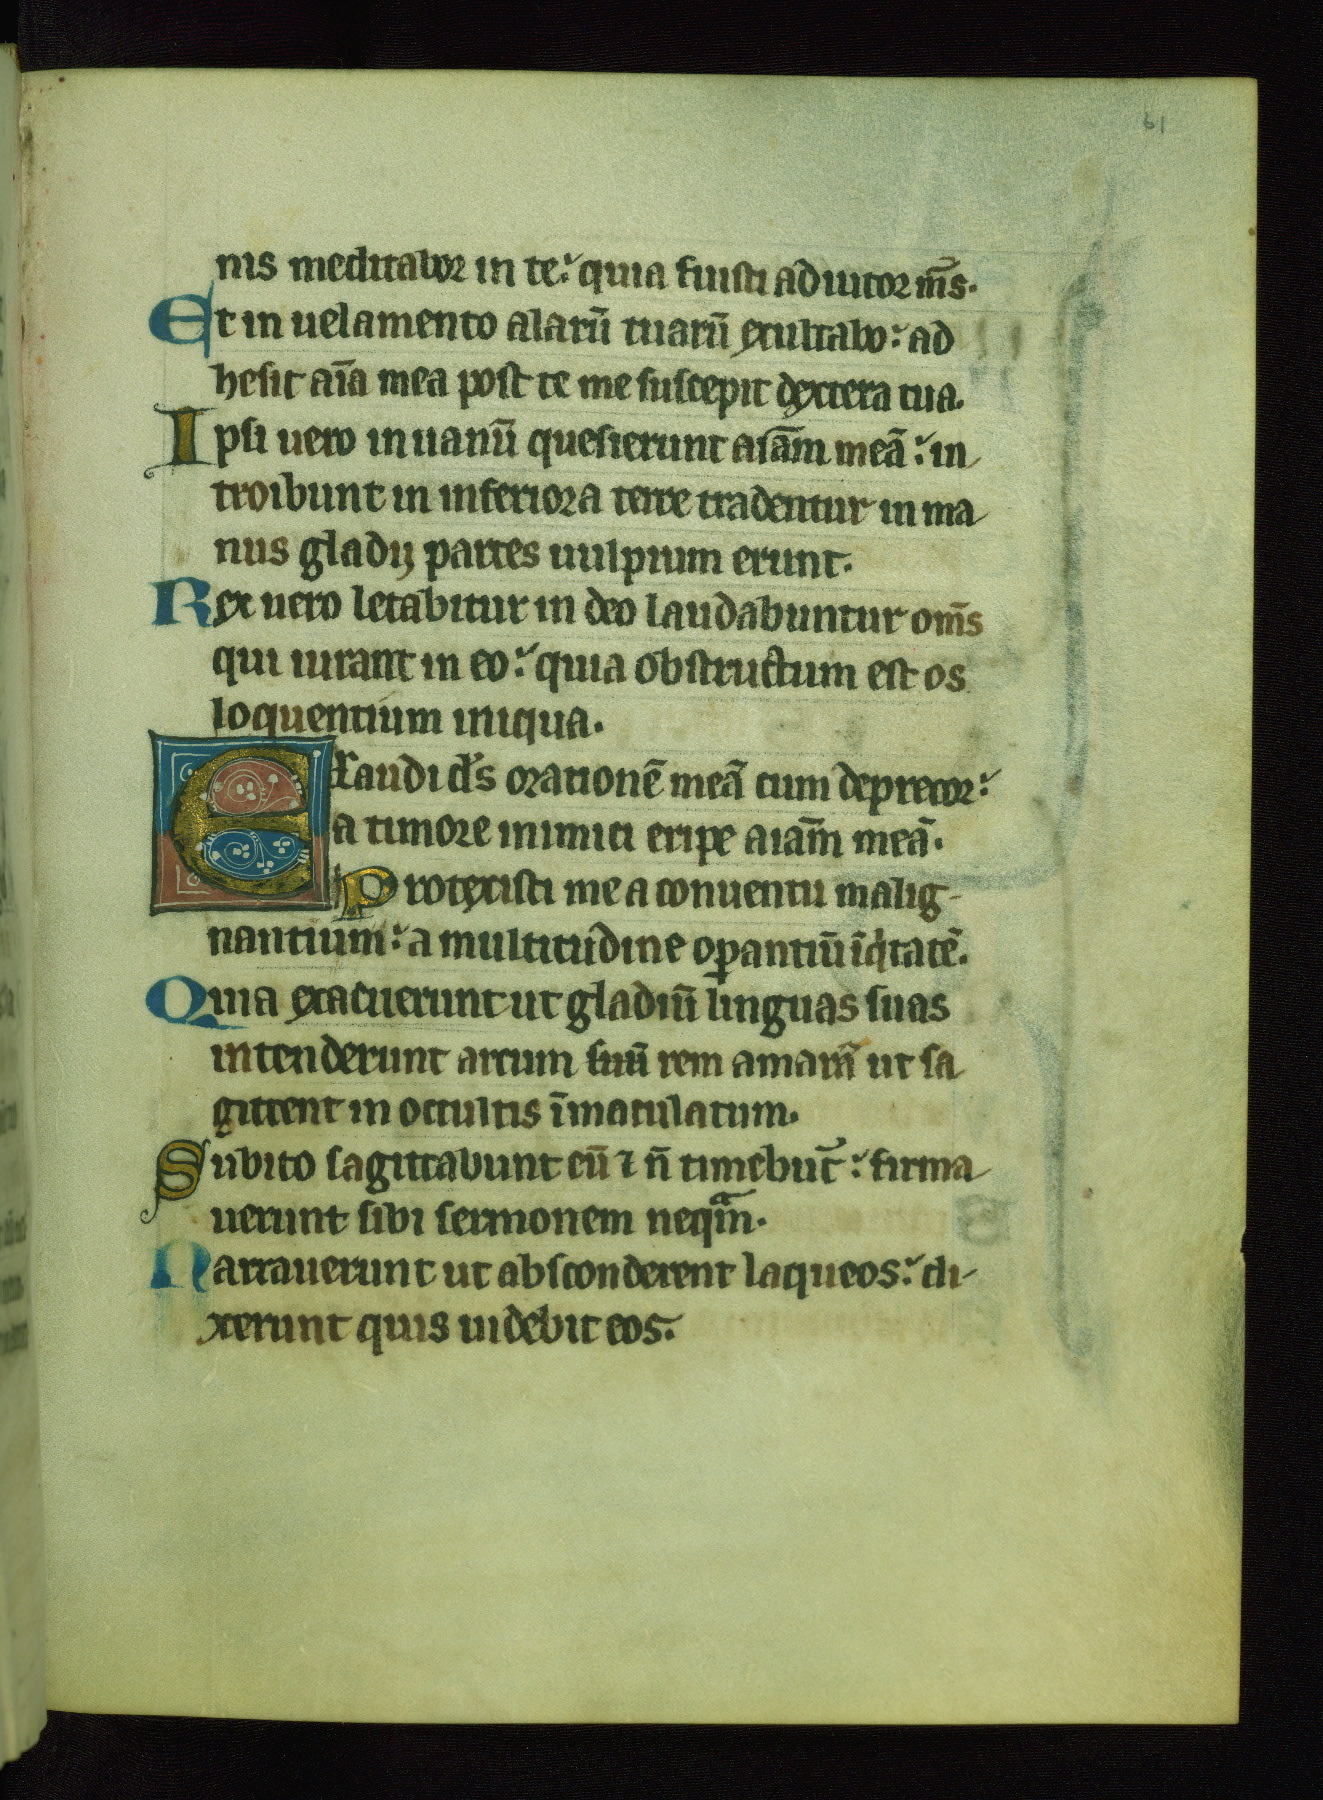 61
nis meditabor in te: quia fuisti adiutor m̄s.
Et in uelamento alarū tuarū exultabo: ad
hesit aīa mea post te me suscepit dextera tua.
Ipsi uero in uanū quesierunt aīam meā: in
troibunt in inferiora terre tradentur in ma
nus gladij partes uulpium erunt.
Rex uero letabitur in deo laudabuntur om̄s
qui iurant in eo: quia obstructum est os
loquentium iniqua.
Exaudi d̄s orationē meā cum deprecor:
a timore inimici eripe aīam meā.
Protexisti me a conuentu malig-
nantium: a multitudine oꝑantiū īiqͥtatē.
Quia exacuerunt ut gladiū linguas suas
intenderunt arcum suū rem amarā ut sa
gittent in occultis īmaculatum.
Subito sagittabunt eū ⁊ n̄ timebūt: firma
uerunt sibi sermonem neqᵃm.
Narrauerunt ut absconderent laqueos: di-
xerunt quis uidebit eos.